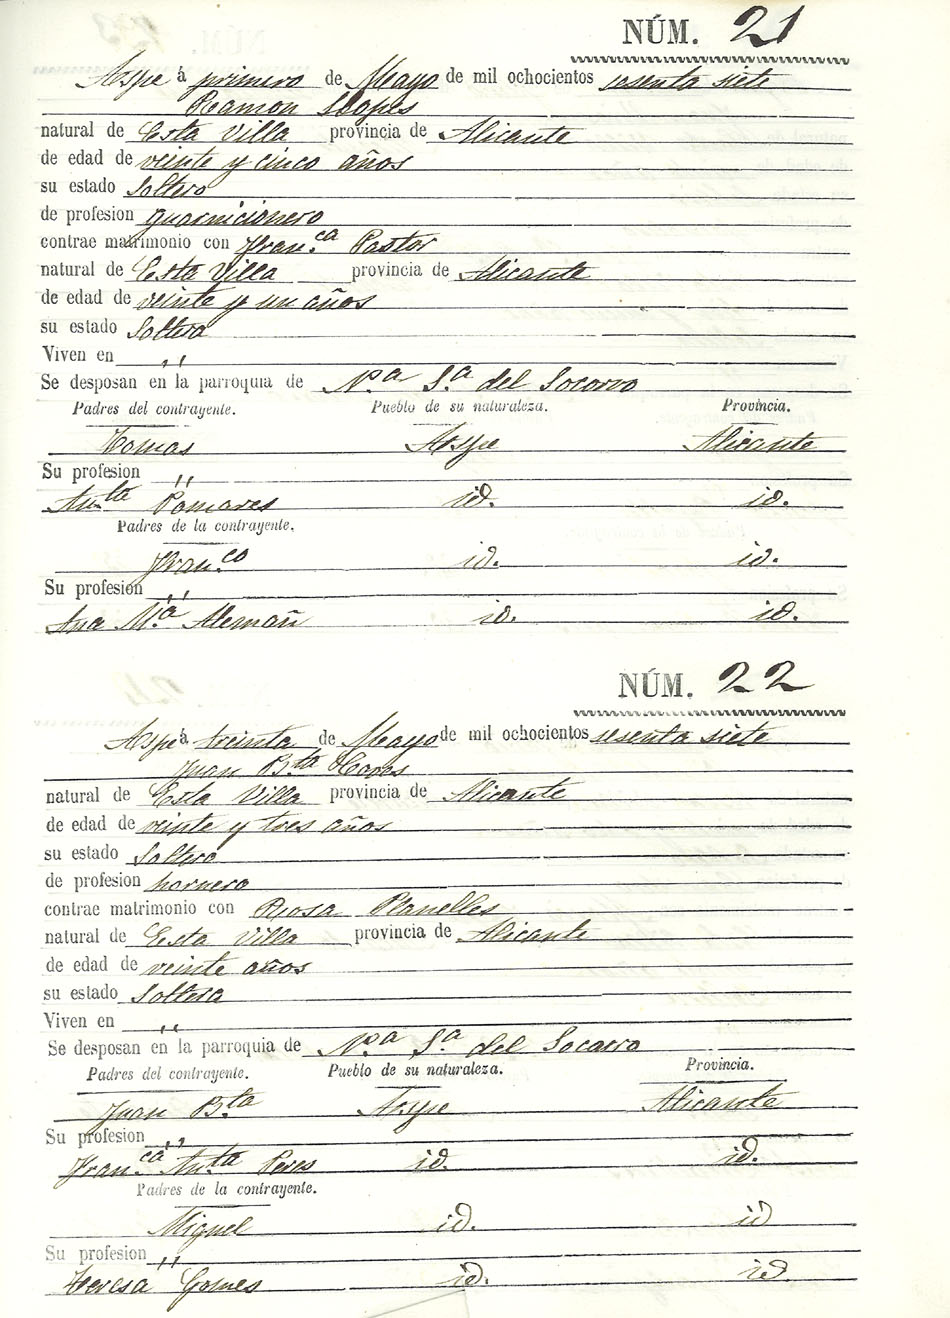 NÚM. 21
Aspe á primero de Mayo de mil ochocientos sesenta siete
Ramon Llopis
natural de Esta Villa provincia de Alicante
de edad de veinte y cinco años
su estado Soltero
de profesion guarnicionero
contrae matrimonio con Fran.ca Pastor
natural de Esta Villa provincia de Alicante
de edad de veinte y un años
su estado Soltera
Viven en ,,
Se desposan en la parroquia de N.ª S.ª del Socorro
Padres del contrayente. Pueblo de su naturaleza. Provincia.
Tomas Aspe Alicante
Su profesion ,,
An.ta Pomares id. id.
Padres de la contrayente.
Fran.co id. id.
Su profesion ,,
Ana M.ª Alemañ id. id.
NÚM. 22
Aspe á treinta de Mayo de mil ochocientos sesenta siete
Juan B.ta
natural de Esta Villa provincia de Alicante
de edad de veinte y tres años
su estado Soltero
de profesion hornero
contrae matrimonio con Rosa Planelles
natural de Esta Villa provincia de Alicante
de edad de veinte años
su estado Soltera
Viven en ,,
Se desposan en la parroquia de N.ª S.ª del Socorro
Padres del contrayente. Pueblo de su naturaleza. Provincia.
Juan B.ta Aspe Alicante
Su profesion ,,
Fran.ca An.ta Peres id. id.
Padres de la contrayente.
Miguel id. id
Su profesion ,,
Teresa Gomes id. id.